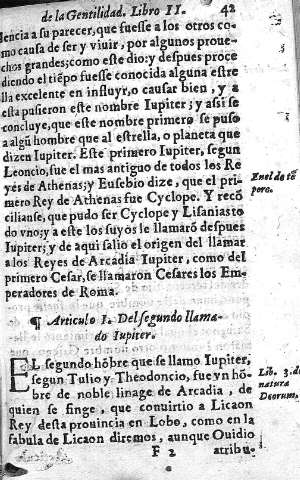 de la Gentilidad. Libro II. 42
lencia a su parecer, que fuesse a los otros co-
mo causa de ser y viuir, por algunos proue-
chos grandes; como este dio: y despues proce
diendo el tiẽpo fuesse conocida alguna estre
lla excelente en influyr, o causar bien, y a
esta pusieron este nombre Iupiter; y assi se
concluye, que este nombre primero se puso
a algũ hombre que al estrella, o planeta que
dizen Iupiter. Este primero Iupiter, segun
Leoncio, fue el mas antiguo de todos los Re
yes de Athenas; y Eusebio dize, que el pri-
mero Rey de Athenas fue Cyclope. Y recõ
ciliause, que pudo ser Cyclope y Lisaniasto
do vno; y a este los suyos le llamarõ despues
Iupiter; y de aqui salio el origen del llamar
a los Reyes de Arcadia Iupiter, como del
primero Cesar, se llamaron Cesares los Em-
peradores de Roma.
En el de tẽ
pore.
¶ Articulo I. Del segundo llama-
do Iupiter.
EL segundo hõbre que se llamo Iupiter,
segun Tulio y Theodoncio, fue vn hõ-
bre de noble linage de Arcadia, de
quien se finge, que conuirtio a Licaon
Rey desta prouincia en Lobo, como en la
fabula de Licaon diremos, aunque Ouidio
Lib. 3. de
natura
Deorum.
F 2 atribu-